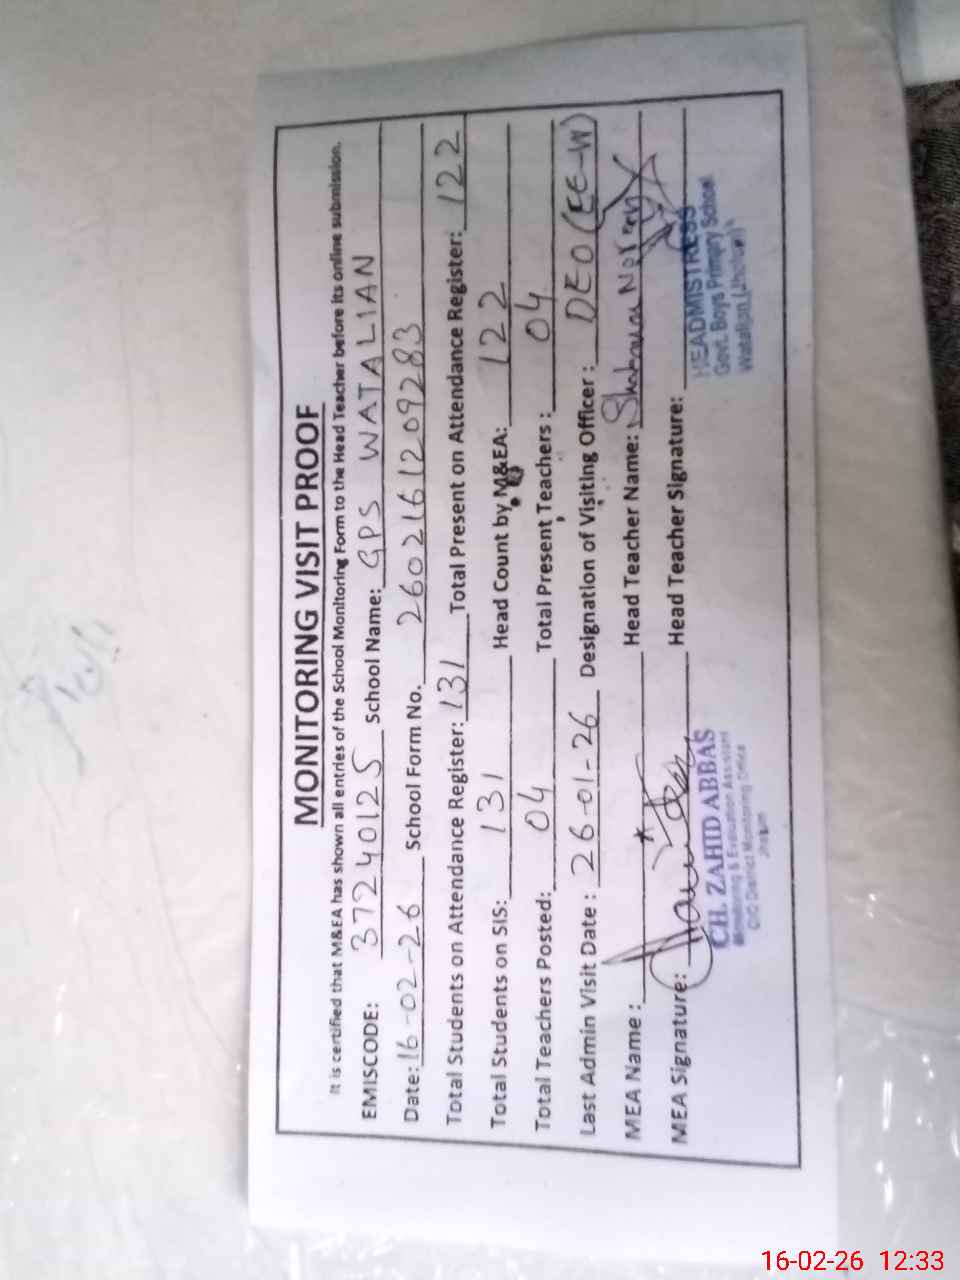 MONITORING VISIT PROOF
It is certified that M&EA has shown all entries of the School Monitoring Form to the Head Teacher before its online submission.
EMISCODE: 37240125 School Name: GPS WATALIAN
Date: 16-02-26 School Form No. 2602161209283
Total Students on Attendance Register: 131 Total Present on Attendance Register: 122
Total Students on SIS: 131 Head Count by M&EA: 122
Total Teachers Posted: 04 Total Present Teachers: 04
Last Admin Visit Date: 26-01-26 Designation of Visiting Officer: DEO (EE-W)
MEA Name: Head Teacher Name:
MEA Signature: Head Teacher Signature:
CH. ZAHID ABBAS
Monitoring & Evaluation Assistant
O/O District Monitoring Office
Jhelum
HEADMISTRESS
Govt. Boys Primary School
Watalian (Jhelum)
16-02-26 12:33